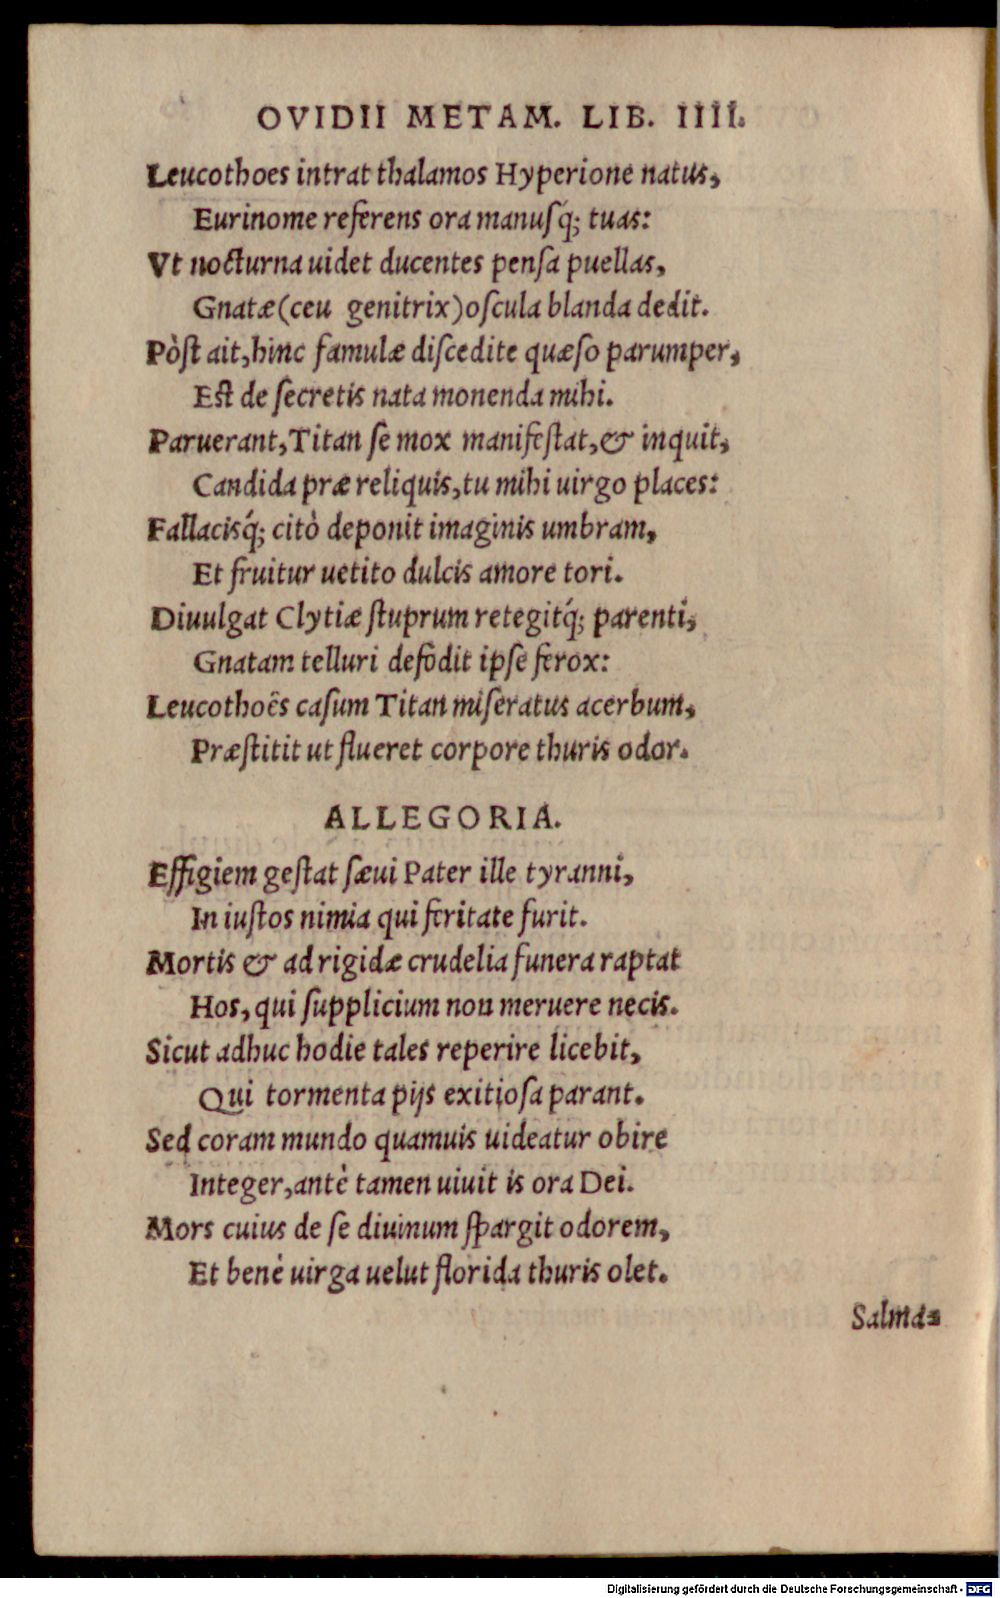 OVIDII METAM. LIB. IIII.
Leucothoes intrat thalamos Hyperione natus,
Eurinome referens ora manusq́; tuas:
Vt nocturna uidet ducentes pensa puellas,
Gnatæ(ceu genitrix)oscula blanda dedit.
Pòst ait,hinc famulæ discedite quæso parumper,
Est de secretis nata monenda mihi.
Paruerant,Titan se mox manifestat,& inquit,
Candida præ reliquis,tu mihi uirgo places:
Fallacisq́; citò deponit imaginis umbram,
Et fruitur uetito dulcis amore tori.
Diuulgat Clytiæ stuprum retegitq́; parenti,
Gnatam telluri defõdit ipse ferox:
Leucothoës casum Titan miseratus acerbum,
Præstitit ut flueret corpore thuris odor.
ALLEGORIA.
Effigiem gestat sæui Pater ille tyranni,
In iustos nimia qui feritate furit.
Mortis & ad rigidæ crudelia funera raptat
Hos, qui supplicium non meruere necis.
Sicut adhuc hodie tales reperire licebit,
Qui tormenta pijs exitiosa parant.
Sed coram mundo quamuis uideatur obire
Integer,antè tamen uiuit is ora Dei.
Mors cuius de se diuinum spargit odorem,
Et benè uirga uelut florida thuris olet.
Salma-
Digitalisierung gefördert durch die Deutsche Forschungsgemeinschaft - DFG